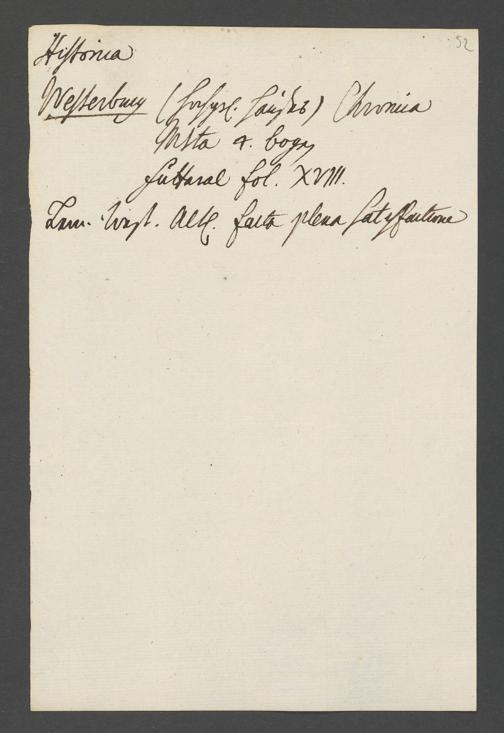 52
Historia
Westerburg (Hochgräfl. Hauses) Chronica
Msta 4. bogen
futteral fol. XVIII.
facta plena satisfactione